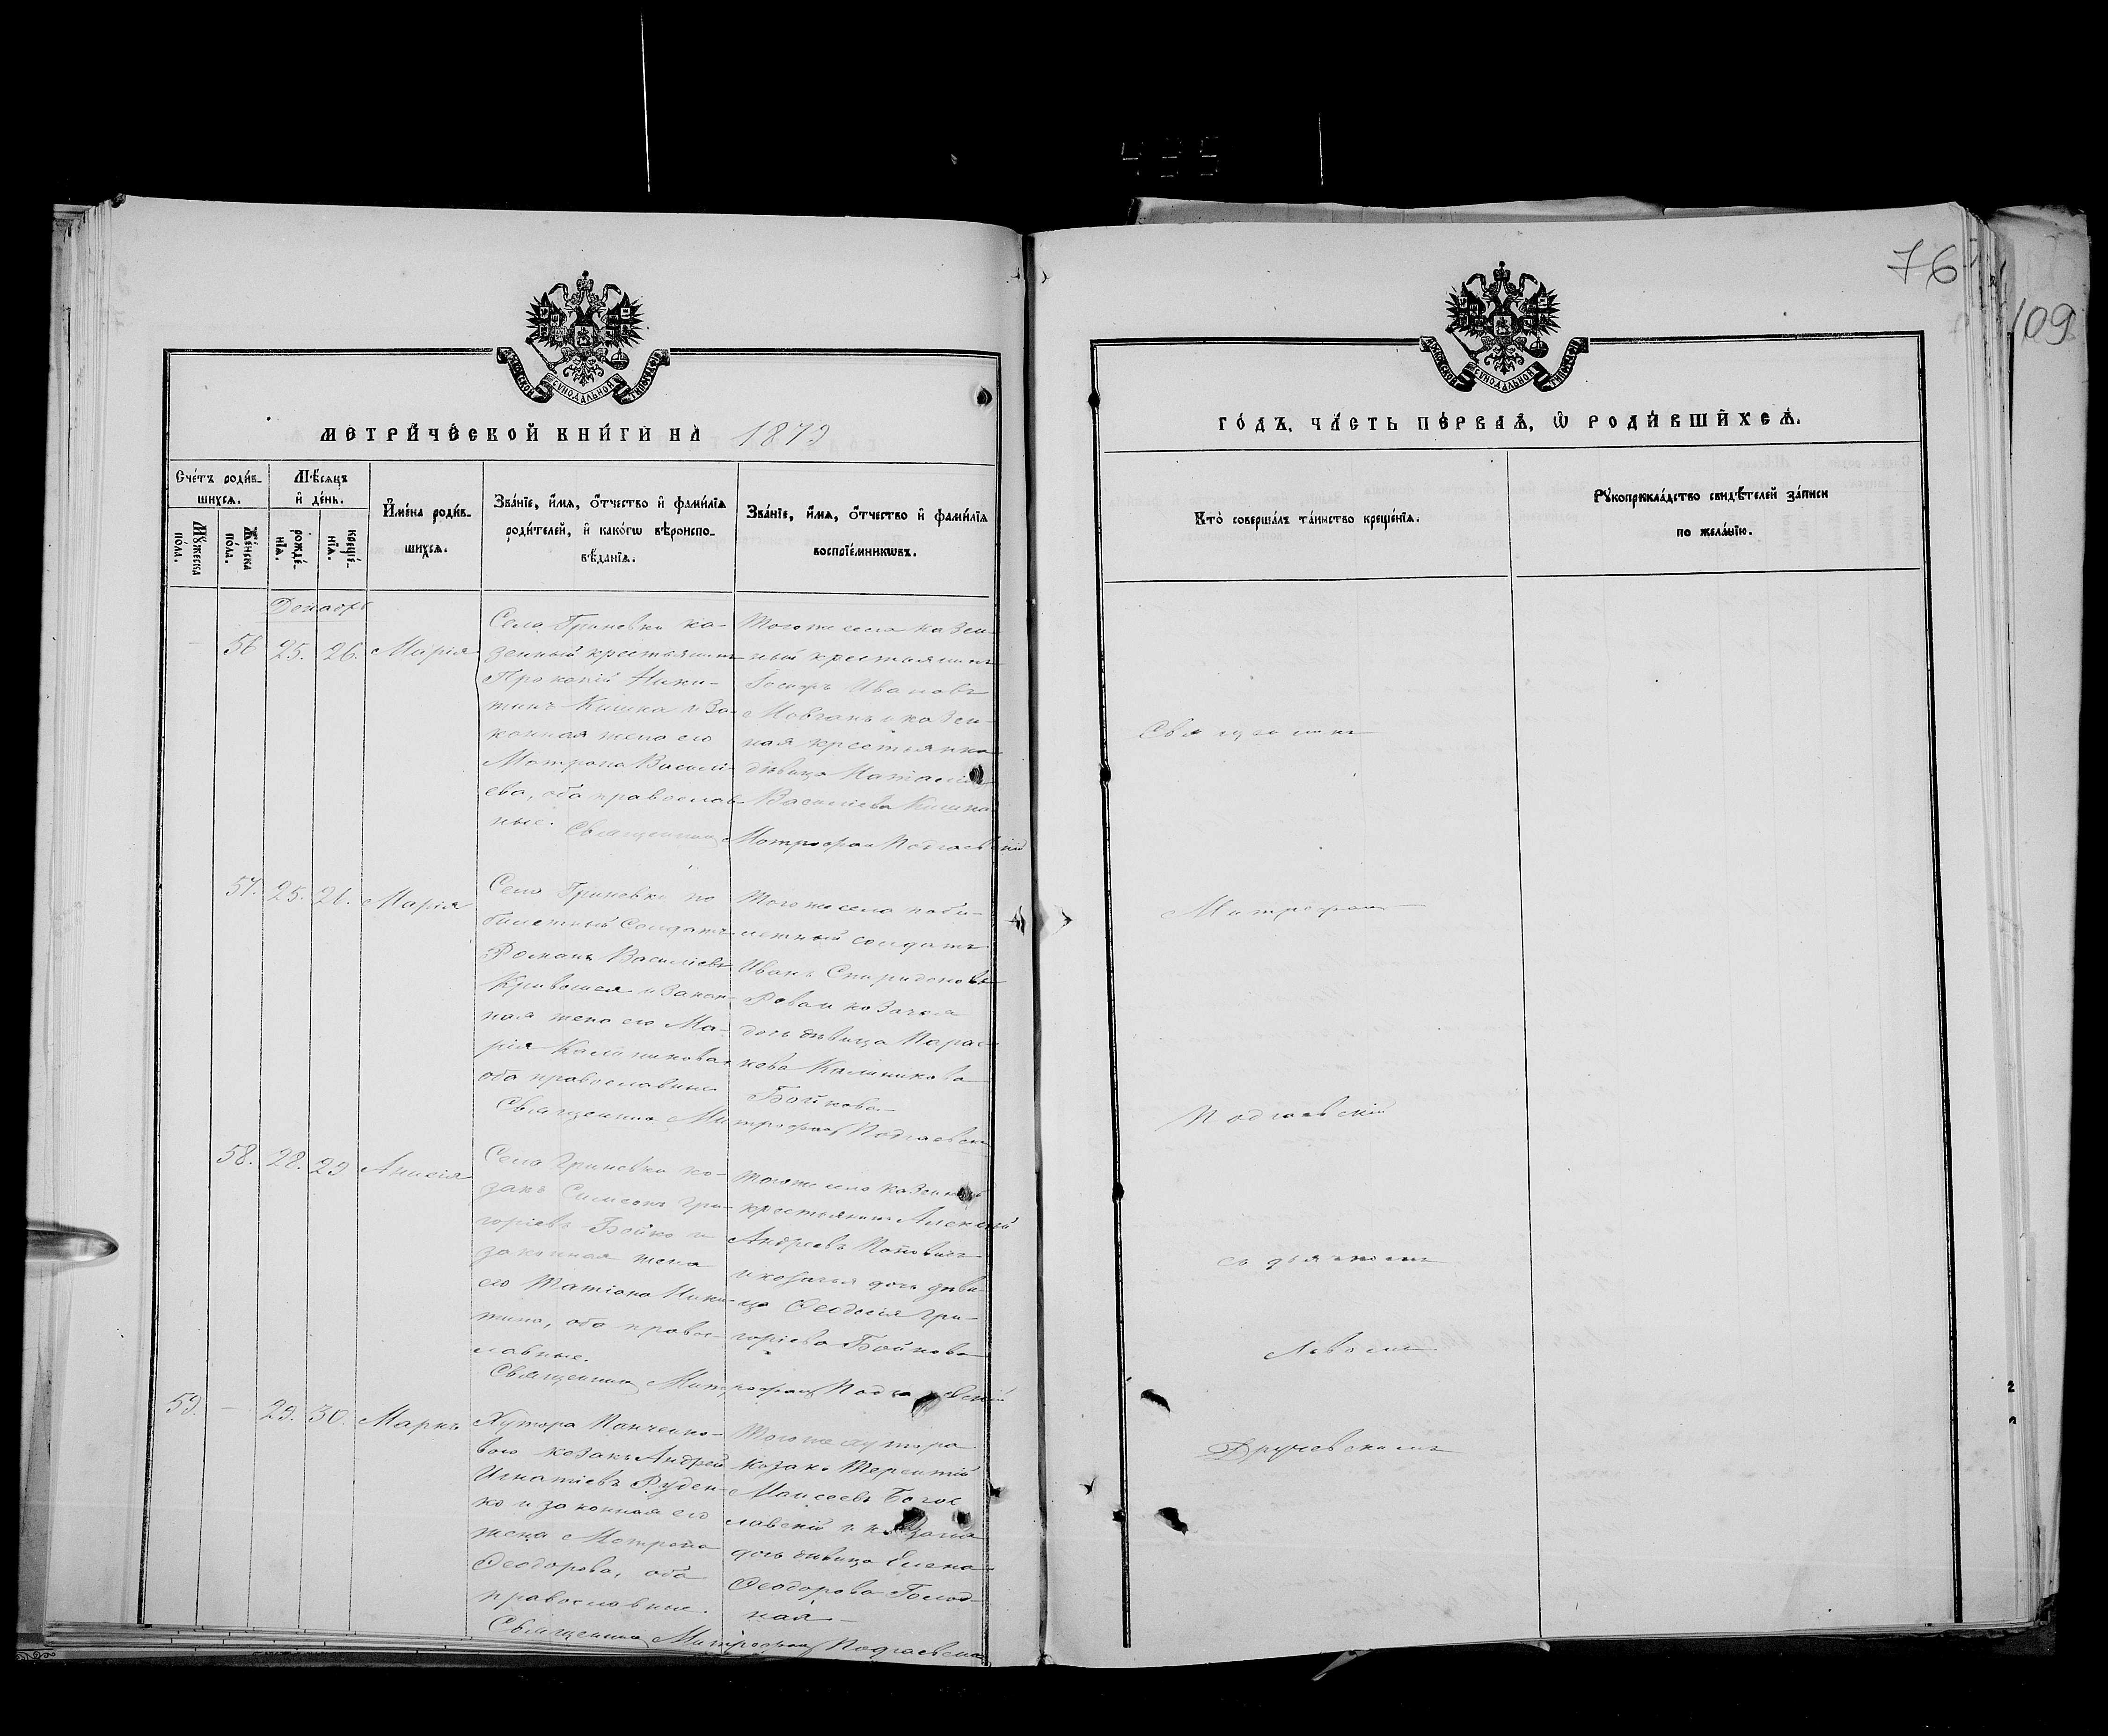 76
109
МЕТРИЧЕСКОЙ КНИГИ НА 1879
ГОДЪ, ЧАСТЬ ПЕРВАЯ, Ѡ РОДИВШИХСЯ.
Счетъ родив-
шихся.
Мѣсяцъ
и день.
Мужеска
пола.
Женска
пола.
рожде-
нія.
креще-
нія.
Имена родив-
шихся.
Званіе, имя, отчество и фамилія
родителей, и какогѡ вѣроиспо-
вѣданія.
Званіе, имя, отчество и фамилія
воспріемникѡвъ.
Кто совершалъ таинство крещенія.
Рукоприкладство свидѣтелей записи
по желанію.
Декабрь
56 25. 26. Марія
Села Гриневки ка-
зенный крестьянинъ
Прокопій Ники-
тинъ Кишка и за-
конная жена его
Матрона Васили-
ева, оба православ-
ные.
Тогоже села казен-
ный крестьянинъ
Іосифъ Ивановъ
Мовчанъ и казен-
ная крестьянка
дѣвица Наталія
Василіева Кишко-
Священникъ Митрофан Подгаевскій
57. 25. 26. Марія
Села Гриневки по
билетный солдатъ
Романъ Василіевъ
Кривошея и закон-
ная жена его Ма-
рія Калиникова
оба православные
Тогоже села поби-
летный солдатъ
Иванъ Спиридоновъ
дочь дѣвица Парас-
кева Калиникова
Бойкова
Священникъ Митрофан Подгаевскій
58. 28. 29 Анисія
Села Гриневки ко-
закъ Симеонъ Гри-
горіевъ Бойко и
законная жена
его Татіана Ники-
тина, оба правос-
лавные.
Тогоже села казенный
крестьянинъ Алексѣй
Андреевъ Поповичъ
и козачья дочь дѣви-
ца Ѳеодосія Гри-
горіева Бойкова
Священникъ Митрофан Подгаевскій
59. — 29. 30. Маркъ
Хутора Панченко-
вого козакъ Андрей
Игнатіевъ Руден-
ко и законная его
жена Матрона
Ѳеодорова, оба
православные.
Тогоже хутора
козакъ Терентій
Моисеевъ Богос
лавскій и козачья
дочь дѣвица Елена
Ѳеодорова Голод-
ная
Священникъ Митрофан Подгаевскій
Священникъ
Митрофан
Подгаевскій
съ дьячкомъ
Львомъ
Дручевскимъ